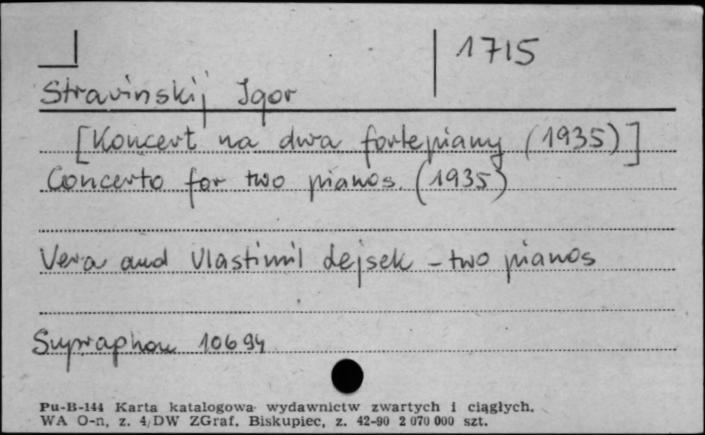 1715
Stravinskij Igor
[Koncert na dwa fortepiany (1935)]
Concerto for two pianos. (1935)
Vera and Vlastimil Lejsek - two pianos
Supraphon 10694
Pu-B-144 Karta katalogowa wydawnictw zwartych i ciągłych.
WA O-n, z. 4/DW ZGraf. Biskupiec, z. 42-90 2 070 000 szt.